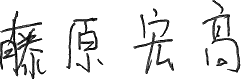 藤原宏高